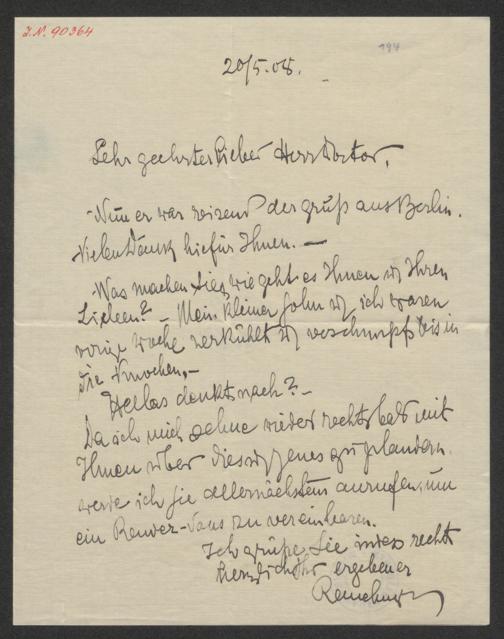 J.N. 90364
194
20/5.08.
Sehr geehrter lieber Herr Doctor,
Nun er war reizend der Gruß aus Berlin.
Vielen Dank hiefür Ihnen. —
Was machen Sie, wie geht es Ihnen u. Ihren
Lieben? – Mein kleiner Sohn u. ich waren
vorige Woche verkühlt u. verschnupft bis in
die Knochen. –
Hellas denkts nach? –
Da ich mich sehne wieder recht bald mit
Ihnen über dies u. jenes zu plaudern,
werde ich Sie allernächstens anrufen, um
ein Render-Vous zu vereinbaren.
Ich grüße Sie indess recht
herzlich Ihr ergebener